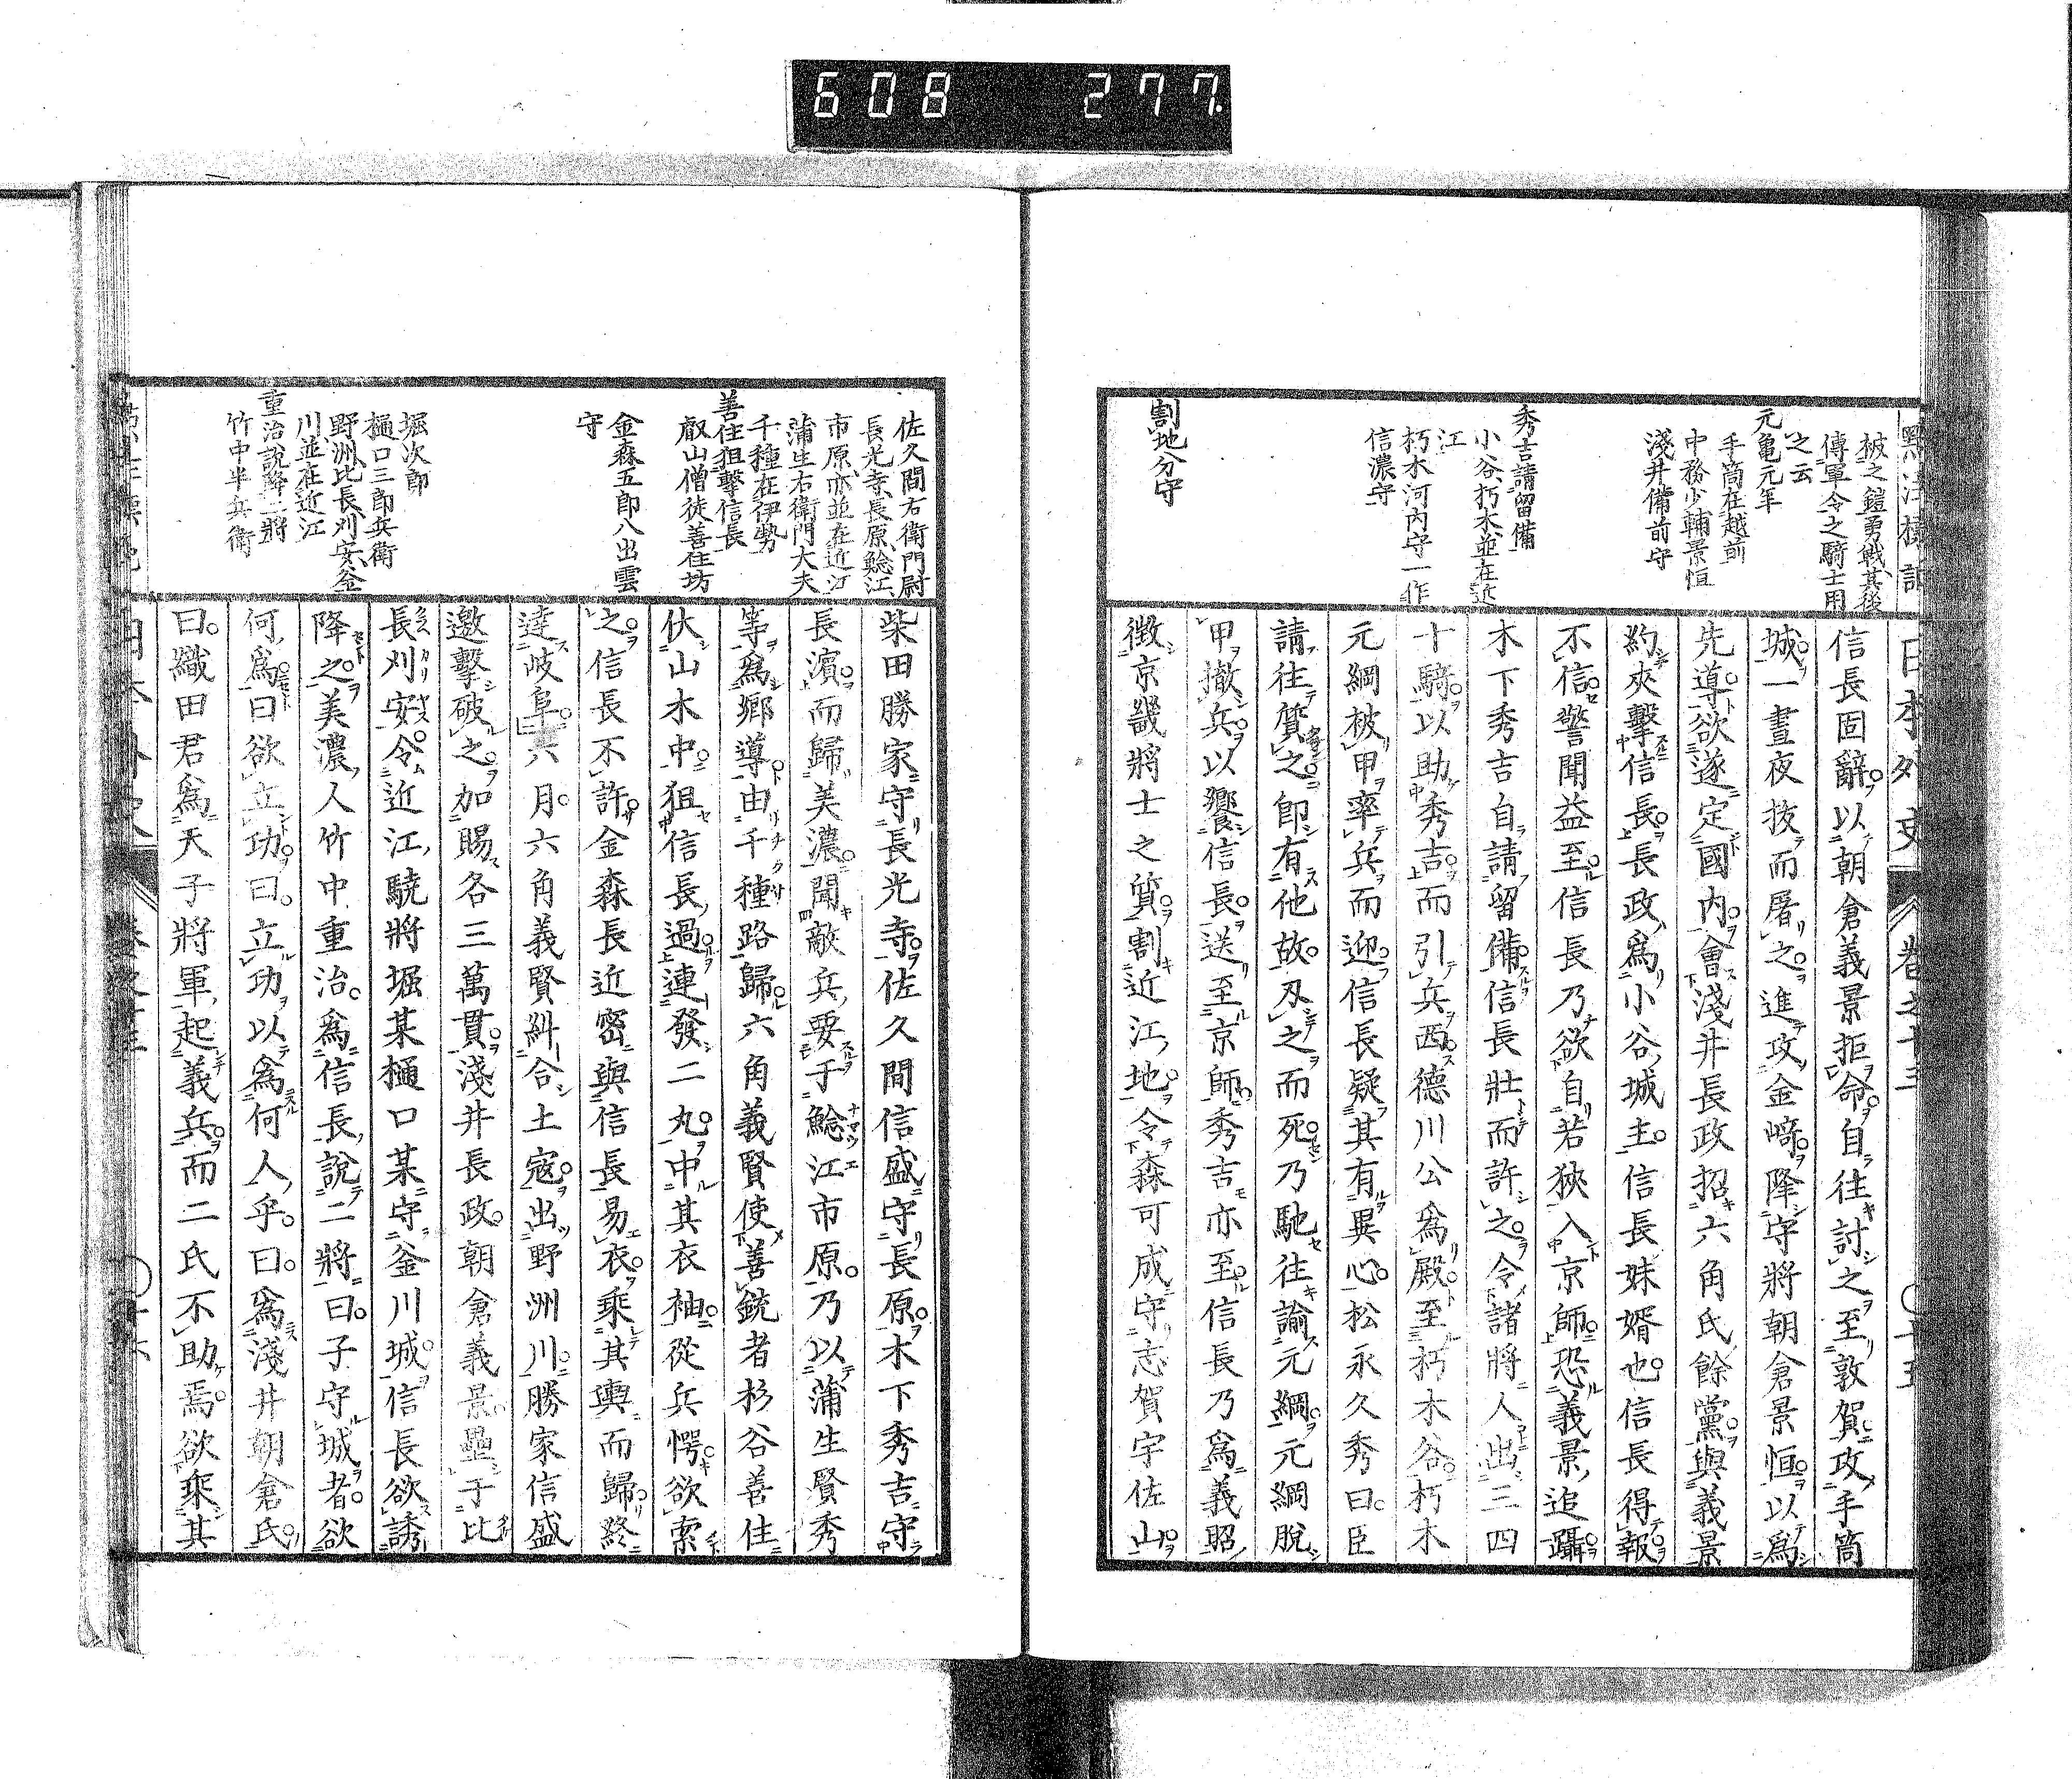 608 277
日本外史
卷之十三
十五
被之鎧勇戰其後
傳軍令之騎士用
之云
元亀元年
手筒在越前
中務少輔景恒
淺井備前守
秀吉請留備
小谷、朽木、並在近
江
朽木河内守一作
信濃守
割地分守
信長固辭以朝倉義景拒命自往討之至敦賀攻手筒
城一晝夜拔而屠之進攻金﨑降守將朝倉景恒以爲
先導欲遂定國内會淺井長政招六角氏餘黨與義景
約夾擊信長長政爲小谷城主信長妹婿也信長得報
不信警聞益至信長乃欲自若狹入京師恐義景追躡
木下秀吉自請留備信長壯而許之令諸將人出三四
十騎以助秀吉而引兵西德川公爲殿至朽木谷朽木
元綱被甲率兵而迎信長疑其有異心松永久秀曰臣
請往質之卽有他故刄之而死乃馳往諭元綱元綱脫
甲撤兵以饗信長送至京師秀吉亦至信長乃爲義昭
徵京畿將士之質割近江地令森可成守志賀宇佐山
佐久間右衛門尉
長光寺、長原、鯰江、
市原、亦並在近江
蒲生右衛門大夫
千種在伊勢
善住狙擊信長
叡山僧徒善住坊
金森五郎八出雲
守
堀次郎
樋口三郎兵衛
野洲、比、長刈安、釜
川、並在近江
重治說降二將
竹中半兵衛
柴田勝家守長光寺佐久間信盛守長原木下秀吉守
長濱而歸美濃聞敵兵要于鯰江市原乃以蒲生賢秀
等爲鄉導由千種路歸六角義賢使善銃者杉谷善住
伏山木中狙信長過連發二丸中其衣袖從兵愕欲索
之信長不許金森長近密與信長易衣乘其輿而歸終
達岐阜六月六角義賢糾合土寇出野洲川勝家信盛
邀擊破之加賜各三萬貫淺井長政朝倉義景壘于比
長刈安令近江驍將堀某樋口某守釜川城信長欲誘
降之美濃人竹中重治爲信長說二將曰子守城者欲
何爲曰欲立功曰立功以爲何人乎曰爲淺井朝倉氏
曰織田君爲天子將軍起義兵而二氏不助焉欲乘其